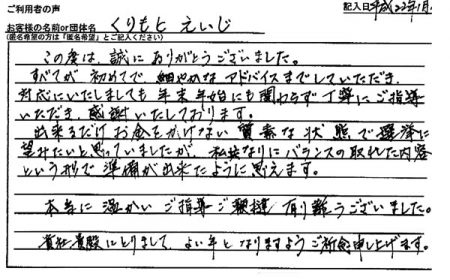 ご利用者の声
記入日 平成23年1月
お客様の名前or団体名 くりもと えいじ
(匿名希望の方は「匿名希望」とご記入ください)
この度は、誠にありがとうございました。
すべてが初めてで細やかなアドバイスまでしていただき、
対応にいたしましても年末年始にも関わらず丁寧にご指導
いただき、感謝いたしております。
出来るだけお金をかけない質素な状態で選挙に
望みたいと思っていましたが、私なりにバランスの取れた内容
という形で準備が出来たように思えます。
本当に温かいご指導ご鞭撻有り難うございました。
貴社貴殿にとりまして、よい年となりますようご祈念申し上げます。